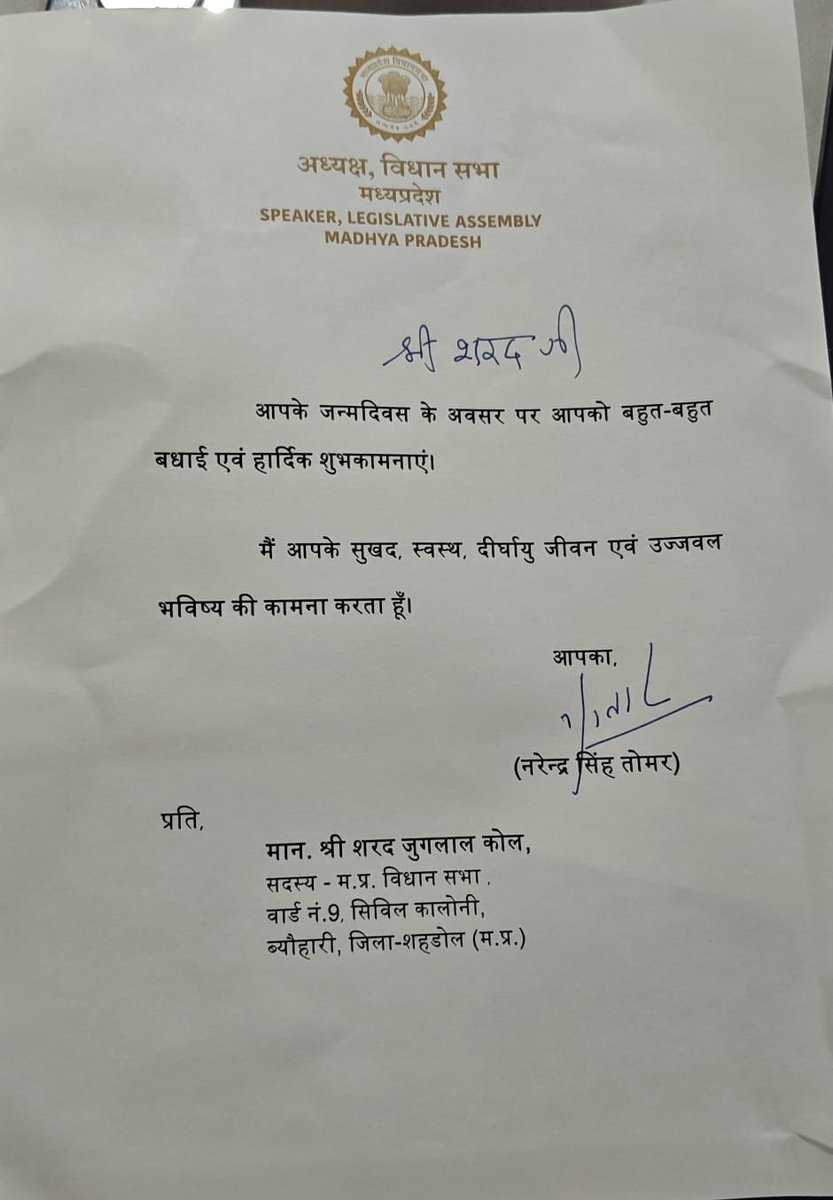 मध्यप्रदेश विधानसभा
अध्यक्ष, विधान सभा
मध्यप्रदेश
SPEAKER, LEGISLATIVE ASSEMBLY
MADHYA PRADESH
श्री शरद जी
आपके जन्मदिवस के अवसर पर आपको बहुत-बहुत
बधाई एवं हार्दिक शुभकामनाएं।
मैं आपके सुखद, स्वस्थ, दीर्घायु जीवन एवं उज्जवल
भविष्य की कामना करता हूँ।
आपका,
(नरेन्द्र सिंह तोमर)
प्रति,
मान. श्री शरद जुगलाल कोल,
सदस्य - म.प्र. विधान सभा ,
वार्ड नं.9, सिविल कालोनी,
ब्यौहारी, जिला-शहडोल (म.प्र.)